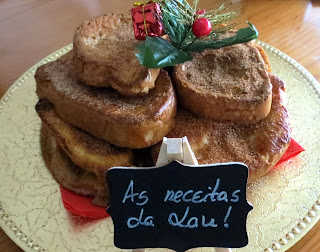 As receitas
da Lau!